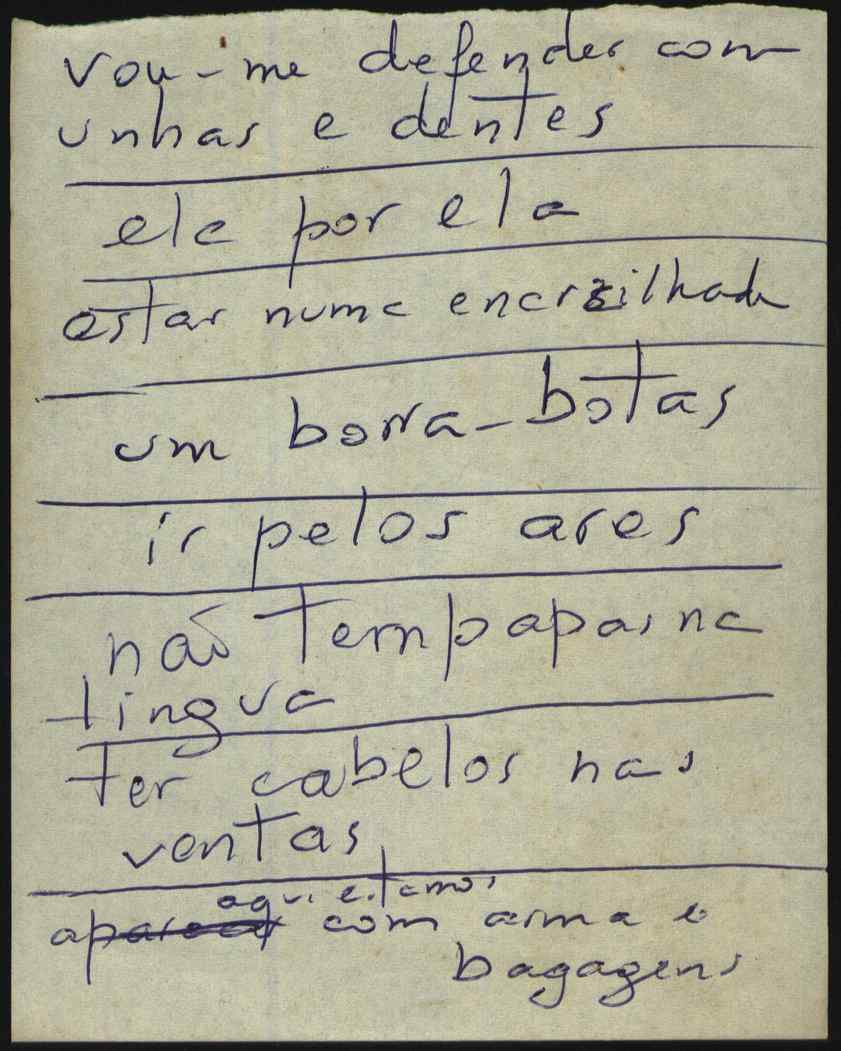 vou-me defender com
unhas e dentes
ela por ela
estar numa encrzilhada
um borra-botas
ir pelos ares
não tem papas na
língua
ter cabelos nas
ventas
aqui estamos
com arma e
bagagens